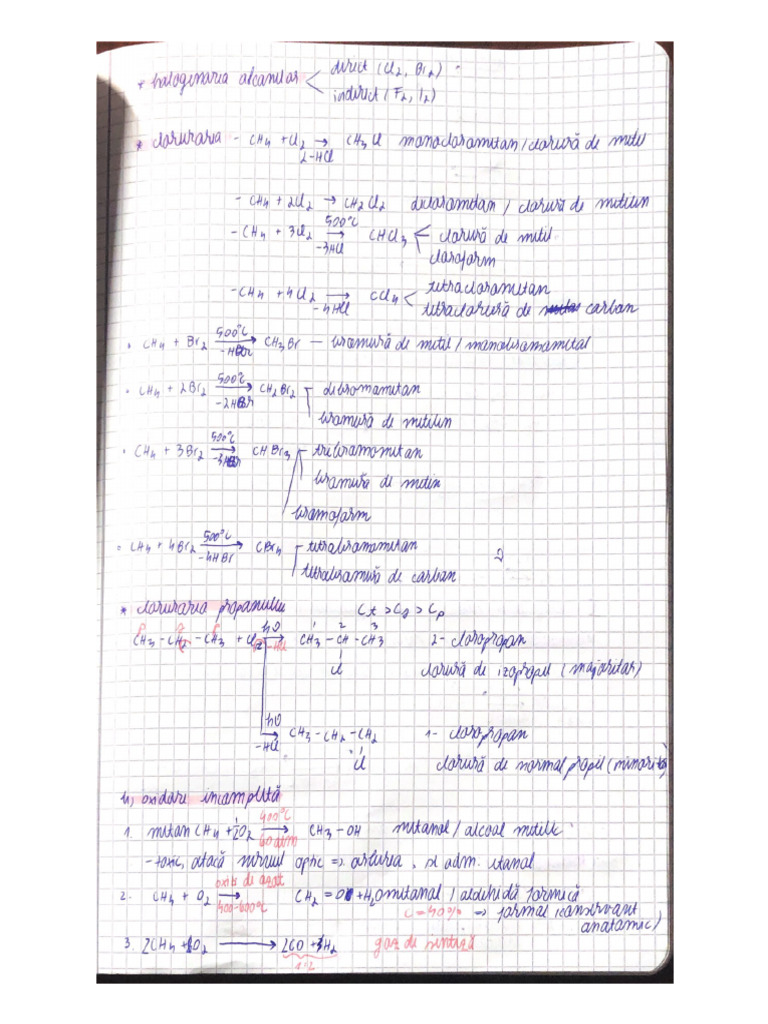 * halogenarea alcanilor < direct (Cl₂, Br₂)
indirect (F₂, I₂)
* clorurarea - CH₄ + Cl₂ → CH₃Cl monoclorometan / clorură de metil
-HCl
- CH₄ + 2Cl₂ → CH₂Cl₂ diclorometan / clorură de metilen
500°C
- CH₄ + 3Cl₂ → CHCl₃ < clorură de metil
-3HCl
cloroform
- CH₄ + 4Cl₂ → CCl₄ < tetraclorometan
-4HCl
tetraclorură de carbon
500°C
• CH₄ + Br₂ → CH₃Br - bromură de metil / monobromometan
-HBr
500°C
• CH₄ + 2Br₂ → CH₂Br₂ dibromometan
-2HBr
bromură de metilen
500°C
• CH₄ + 3Br₂ → CHBr₃ tribromometan
-3HBr
bromură de metin
bromoform
500°C
• CH₄ + 4Br₂ → CBr₄ tetrabromometan
-4HBr
tetrabromură de carbon
* clorurarea propanului Ct > Cs > Cp
p s p hν 1 2 3
CH₃ - CH₂ - CH₃ + Cl₂ → CH₃ - CH - CH₃ 2-cloropropan
-HCl
Cl clorură de izopropil (majoritar)
hν
→ CH₃ - CH₂ - CH₂ 1-cloropropan
-HCl
Cl clorură de normal propil (minoritar)
4, oxidare incompletă
400°C
1. metan CH₄ + ½O₂ → CH₃-OH metanol / alcool metilic
60 atm
- toxic, atacă nervul optic => orbirea, se adm. etanol
oxizi de azot
2. CH₄ + O₂ → CH₂=O + H₂O metanal / aldehidă formică
400-600°C
c=40% => formol (conservant
anatomic)
3. 2CH₄ + O₂ → 2CO + 4H₂ gaz de sinteză
1:2